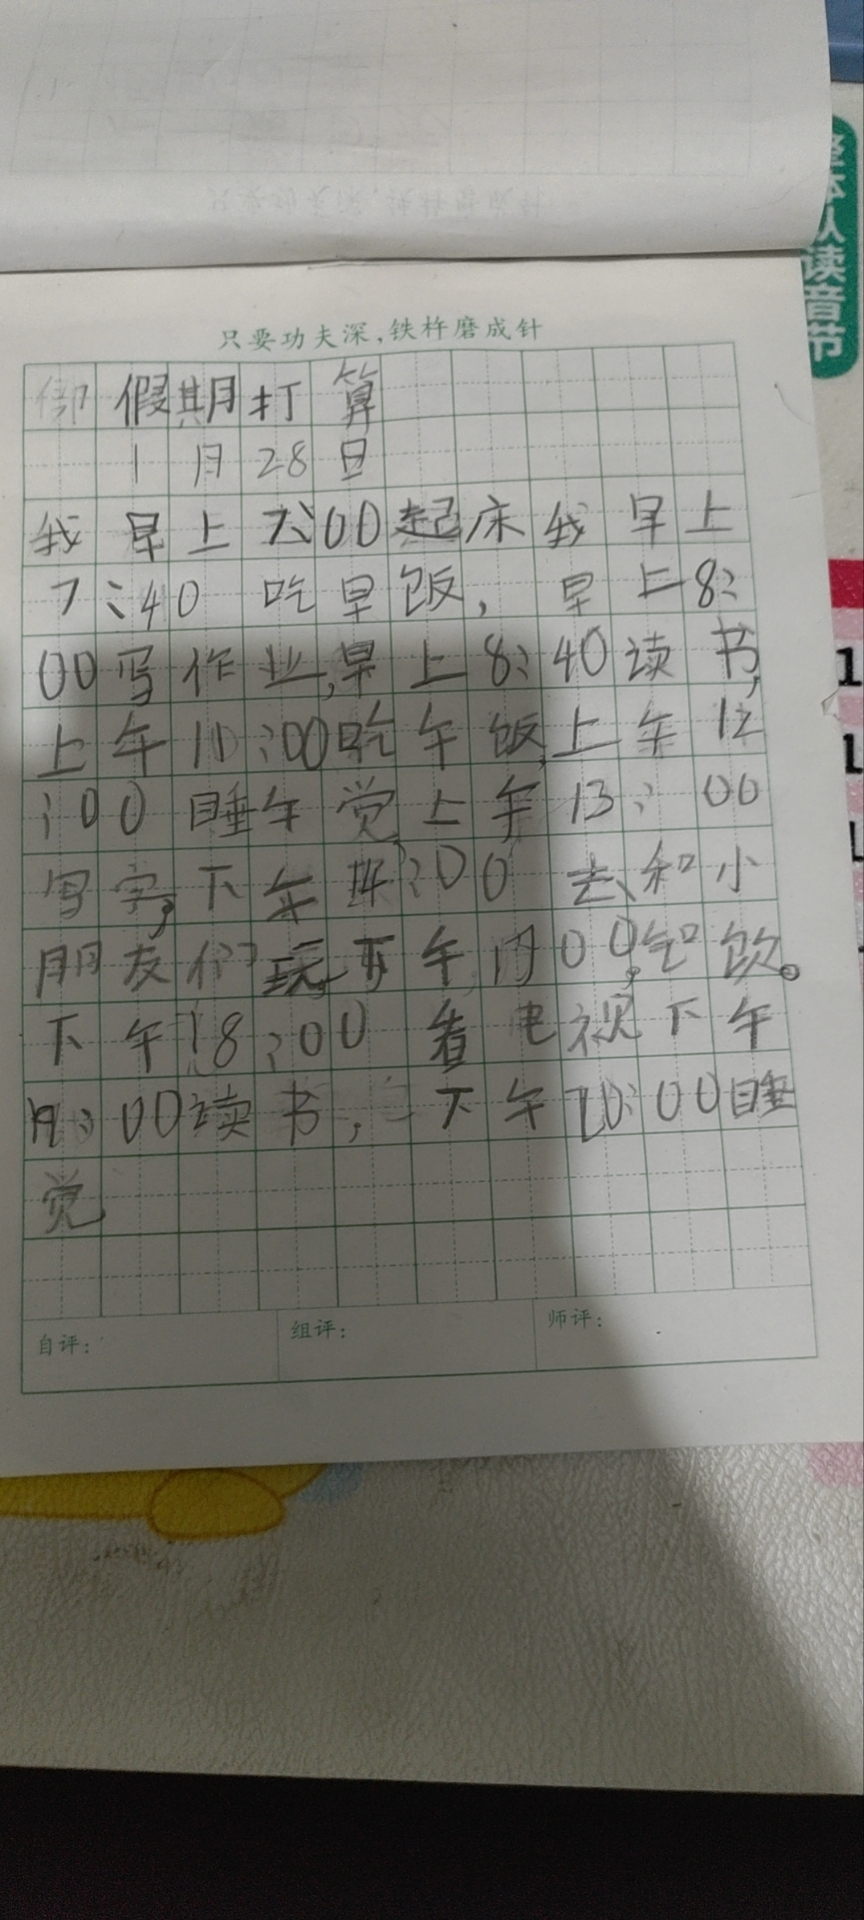 只要功夫深,铁杵磨成针
假期打算
1月28日
我早上7:00起床我早上
7:40 吃早饭,早上8:
00写作业,早上8:40读书,
上午10:00吃午饭,上午12
:00睡午觉上午13:00
写字,下午14:00去和小
朋友们玩,下午 00,吃饮。
下午18:00看电视下午
:00读书,下午20:00睡
觉
自评:
组评:
师评:
整体认读音节
1
1
1